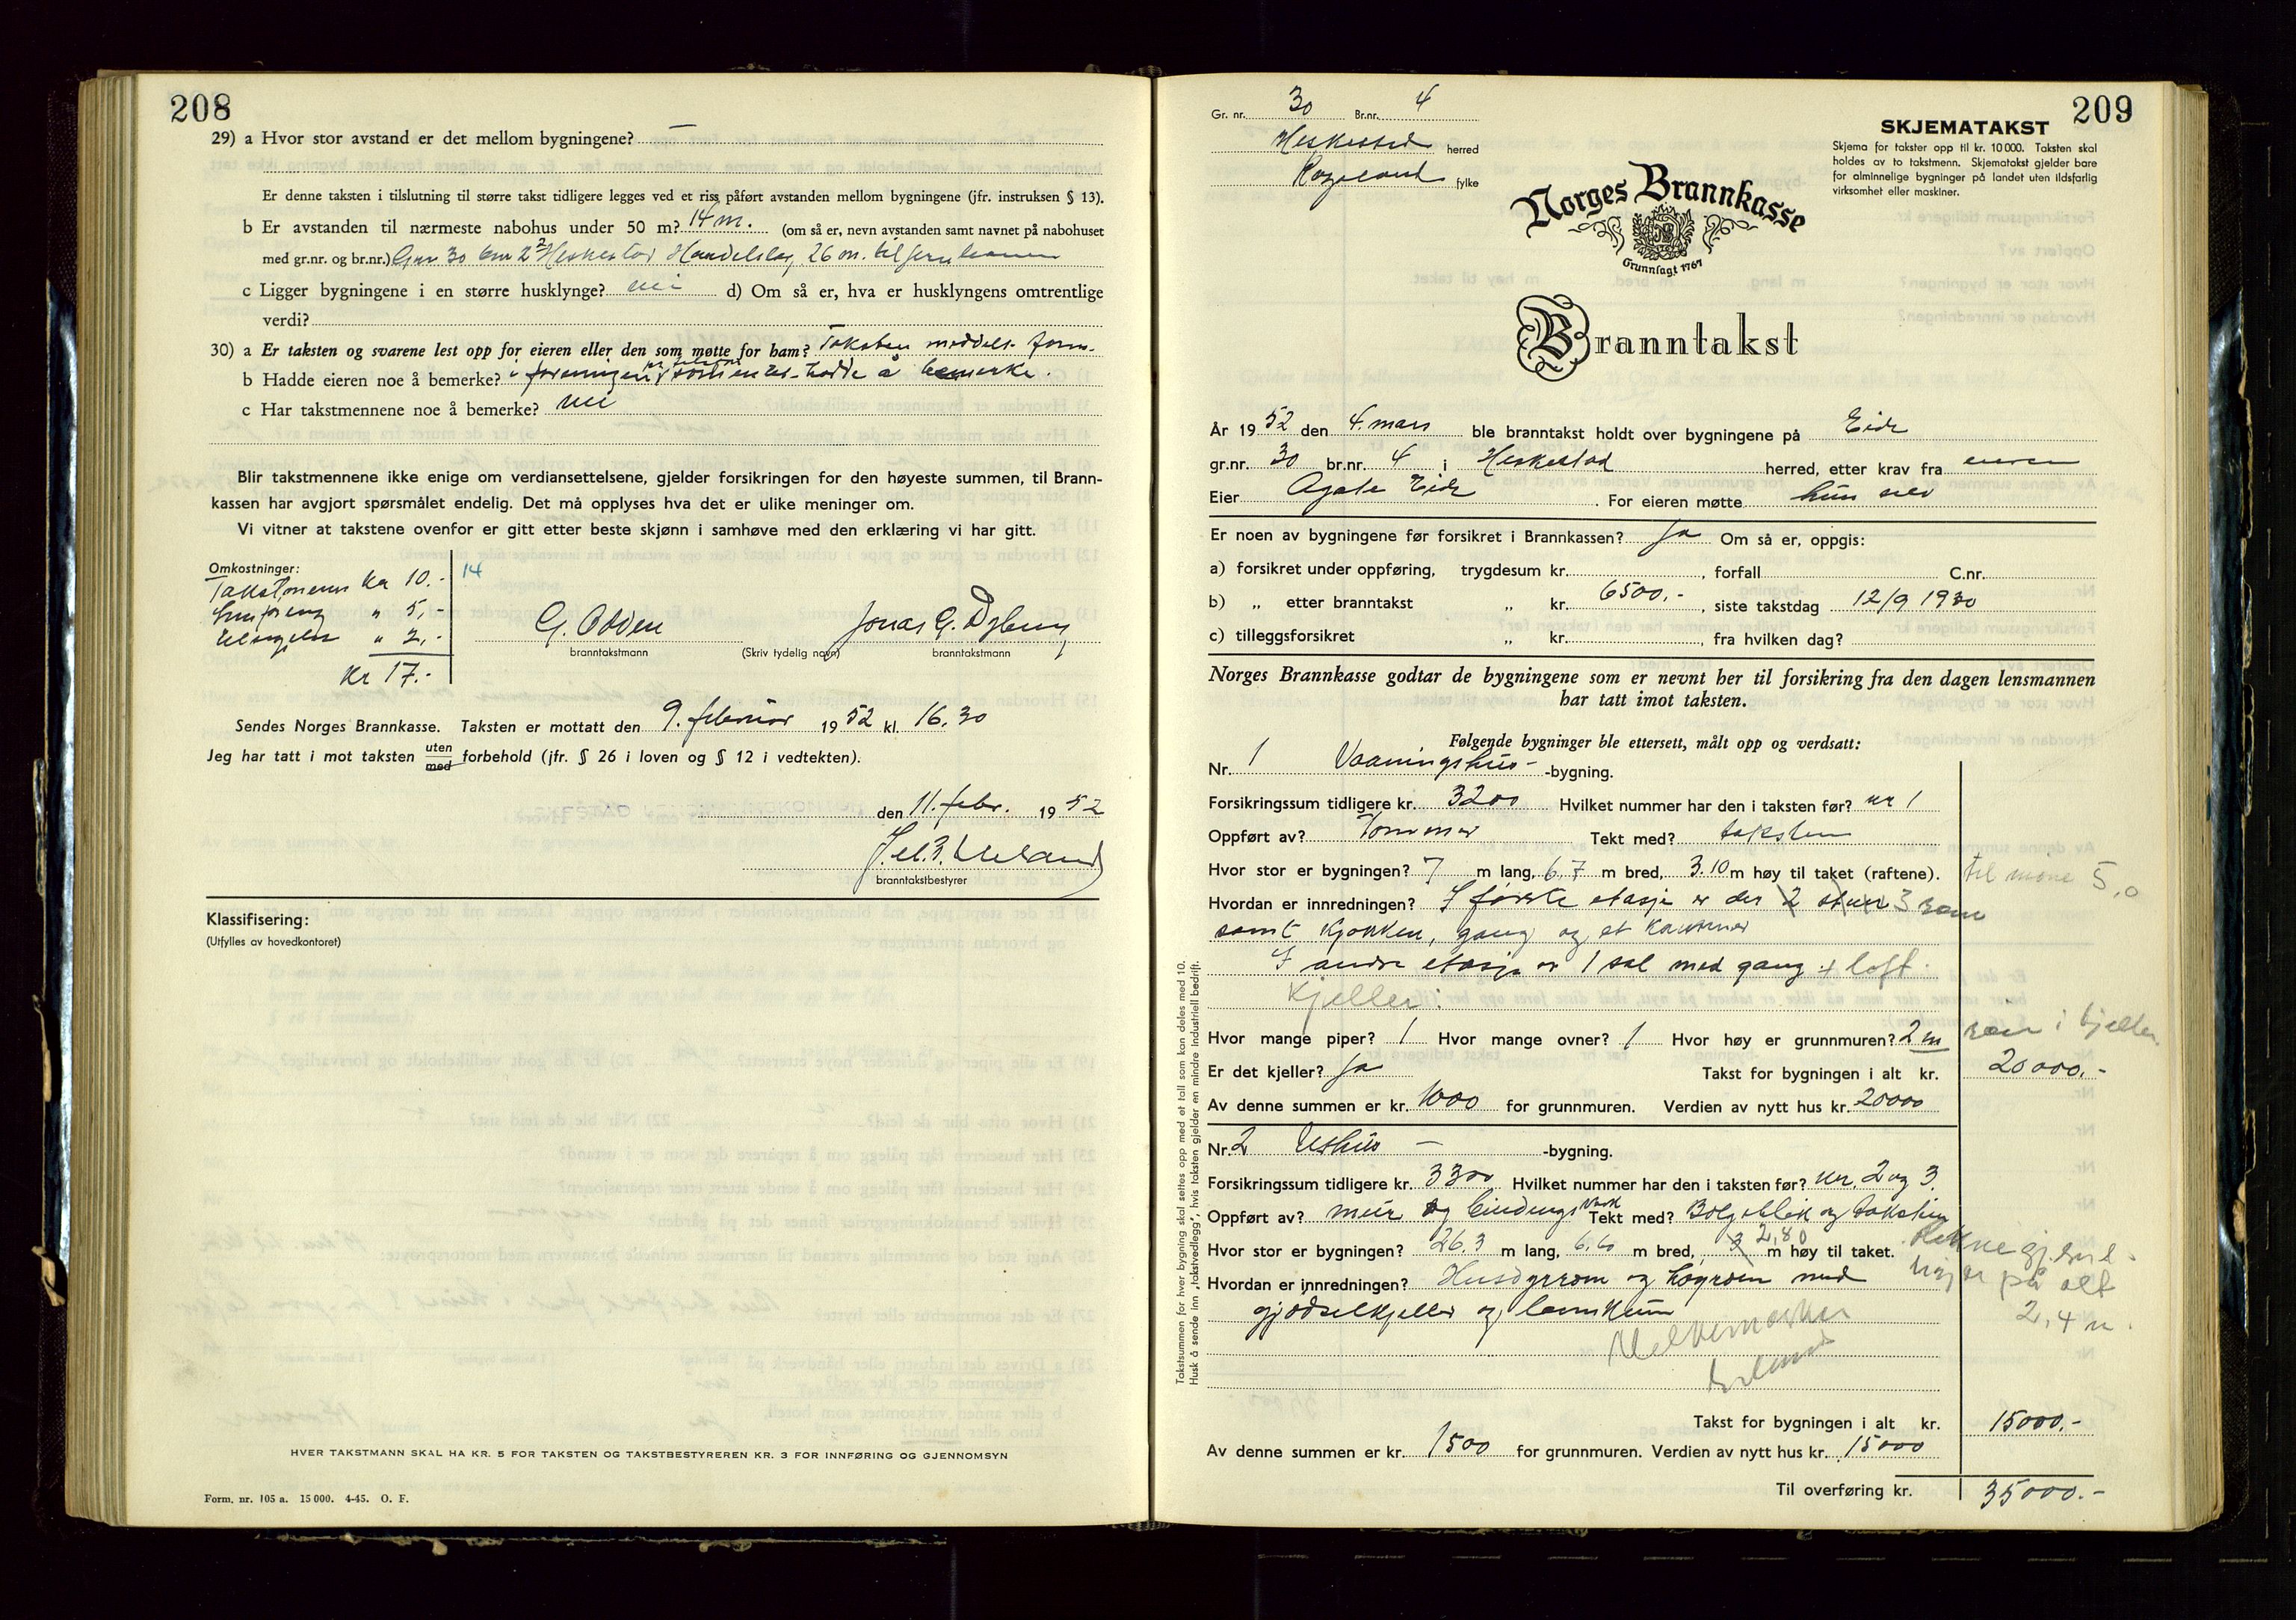 208
29) a Hvor stor avstand er det mellom bygningene? —
Er denne taksten i tilslutning til større takst tidligere legges ved et riss påført avstanden mellom bygningene (jfr. instruksen § 13).
b Er avstanden til nærmeste nabohus under 50 m? 14 m. (om så er, nevn avstanden samt navnet på nabohuset
med gr.nr. og br.nr.) Gnr 30 bnr 2 Heskestad Handelslag, 26 m. til jernbanen
c Ligger bygningene i en større husklynge? nei d) Om så er, hva er husklyngens omtrentlige
verdi?
30) a Er taksten og svarene lest opp for eieren eller den som møtte for ham? Taksten meddelt form.
b Hadde eieren noe å bemerke? i foreningen pr telefon som intet hadde å bemerke.
c Har takstmennene noe å bemerke? nei
Blir takstmennene ikke enige om verdiansettelsene, gjelder forsikringen for den høyeste summen, til Brann-
kassen har avgjort spørsmålet endelig. Det må opplyses hva det er ulike meninger om.
Vi vitner at takstene ovenfor er gitt etter beste skjønn i samhøve med den erklæring vi har gitt.
Omkostninger:
Takstmenn kr 10.- 14
" 5,-
" 2,-
Kr 17.-
G. Odden Jonas G. Dybing
branntakstmann (Skriv tydelig navn) branntakstmann
Sendes Norges Brannkasse. Taksten er mottatt den 9. februar 1952 kl. 16.30
Jeg har tatt i mot taksten uten med forbehold (jfr. § 26 i loven og § 12 i vedtekten).
den 11. febr. 1952
Ueland
branntakstbestyrer
Klassifisering:
(Utfylles av hovedkontoret)
HVER TAKSTMANN SKAL HA KR. 5 FOR TAKSTEN OG TAKSTBESTYREREN KR. 3 FOR INNFØRING OG GJENNOMSYN
Form. nr. 105 a. 15 000. 4-45. O. F.
209
Gr. nr. 30 Br.nr. 4
Heskestad herred
Rogaland fylke
SKJEMATAKST
Skjema for takster opp til kr. 10 000. Taksten skal
holdes av to takstmenn. Skjematakst gjelder bare
for alminnelige bygninger på landet uten ildsfarlig
virksomhet eller maskiner.
Norges Brannkasse
Grunnlagt 1767
Branntakst
År 1952 den 4. mars ble branntakst holdt over bygningene på Eide
gr.nr. 30 br.nr. 4 i Heskestad herred, etter krav fra eieren
Eier Agate Eide For eieren møtte hun selv
Er noen av bygningene før forsikret i Brannkassen? Ja Om så er, oppgis:
a) forsikret under oppføring, trygdesum kr. , forfall C.nr.
b) „ etter branntakst „ kr. 6500.- , siste takstdag 12/9 1930
c) tilleggsforsikret „ kr. , fra hvilken dag?
Norges Brannkasse godtar de bygningene som er nevnt her til forsikring fra den dagen lensmannen
har tatt imot taksten.
Følgende bygninger ble ettersett, målt opp og verdsatt:
Nr. 1 Vaaningshus- -bygning.
Forsikringssum tidligere kr. 3200 Hvilket nummer har den i taksten før? nr 1
Oppført av? Tømmer Tekt med? taksten
Hvor stor er bygningen? 7 m lang, 6.7 m bred, 3.10 m høy til taket (raftene). til møne 5,0
Hvordan er innredningen? I første etasje er der 2 stuer 3 rom
samt kjøkken, gang og et kammer
I andre etasje er 1 sal med gang + loft
Kjeller:
Hvor mange piper? 1 Hvor mange ovner? 1 Hvor høy er grunnmuren? 2 m rom i kjeller
Er det kjeller? Ja Takst for bygningen i alt kr. 20000.-
Av denne summen er kr. 1000 for grunnmuren. Verdien av nytt hus kr. 20000
Nr. 2 Uthus — -bygning.
Forsikringssum tidligere kr. 3300 Hvilket nummer har den i taksten før? nr. 2 og 3.
Oppført av? mur og bindingsverk Tekt med? Bølgeblik og taksten
Hvor stor er bygningen? 26.3 m lang, 6.60 m bred, 3 2,80 m høy til taket. Rekne gj.snl.
Hvordan er innredningen? Husdyrrom og høyrom med høgde på alt
gjødselkjeller og landkum 2,4 m.
Takst for bygningen i alt kr. 15000.-
Av denne summen er kr. 1500 for grunnmuren. Verdien av nytt hus kr. 15000
Til overføring kr. 35000.-
Takstsummen for hver bygning skal settes opp med et tall som kan deles med 10.
Husk å sende inn „takstvedlegg", hvis taksten gjelder en mindre industriell bedrift.